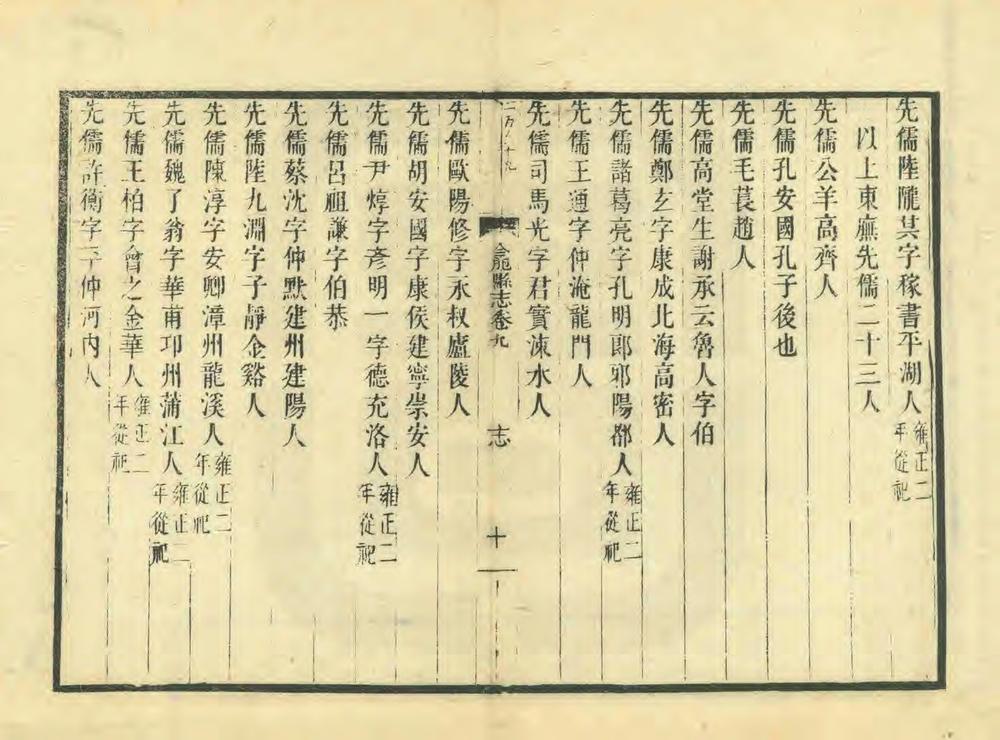 先儒陸隴其字稼書平湖人雍正二年從祀
以上東廡先儒二十三人
先儒公羊高齊人
先儒孔安國孔子後也
先儒毛萇趙人
先儒高堂生謝承云魯人字伯
先儒鄭玄字康成北海高密人
先儒諸葛亮字孔明郎邪陽都人雍正二年從祀
先儒王通字仲淹龍門人
先儒司馬光字君實涑水人
縣志卷九
志
十
先儒歐陽修字永叔廬陵人
先儒胡安國字康侯建寧崇安人
先儒尹焞字彥明一字德充洛人雍正二年從祀
先儒呂祖謙字伯恭
先儒蔡沈字仲默建州建陽人
先儒陸九淵字子靜金谿人
先儒陳淳字安卿漳州龍溪人雍正二年從祀
先儒魏了翁字華甫邛州蒲江人雍正二年從祀
先儒王柏字會之金華人雍正二年從祀
先儒許衡字平仲河內人